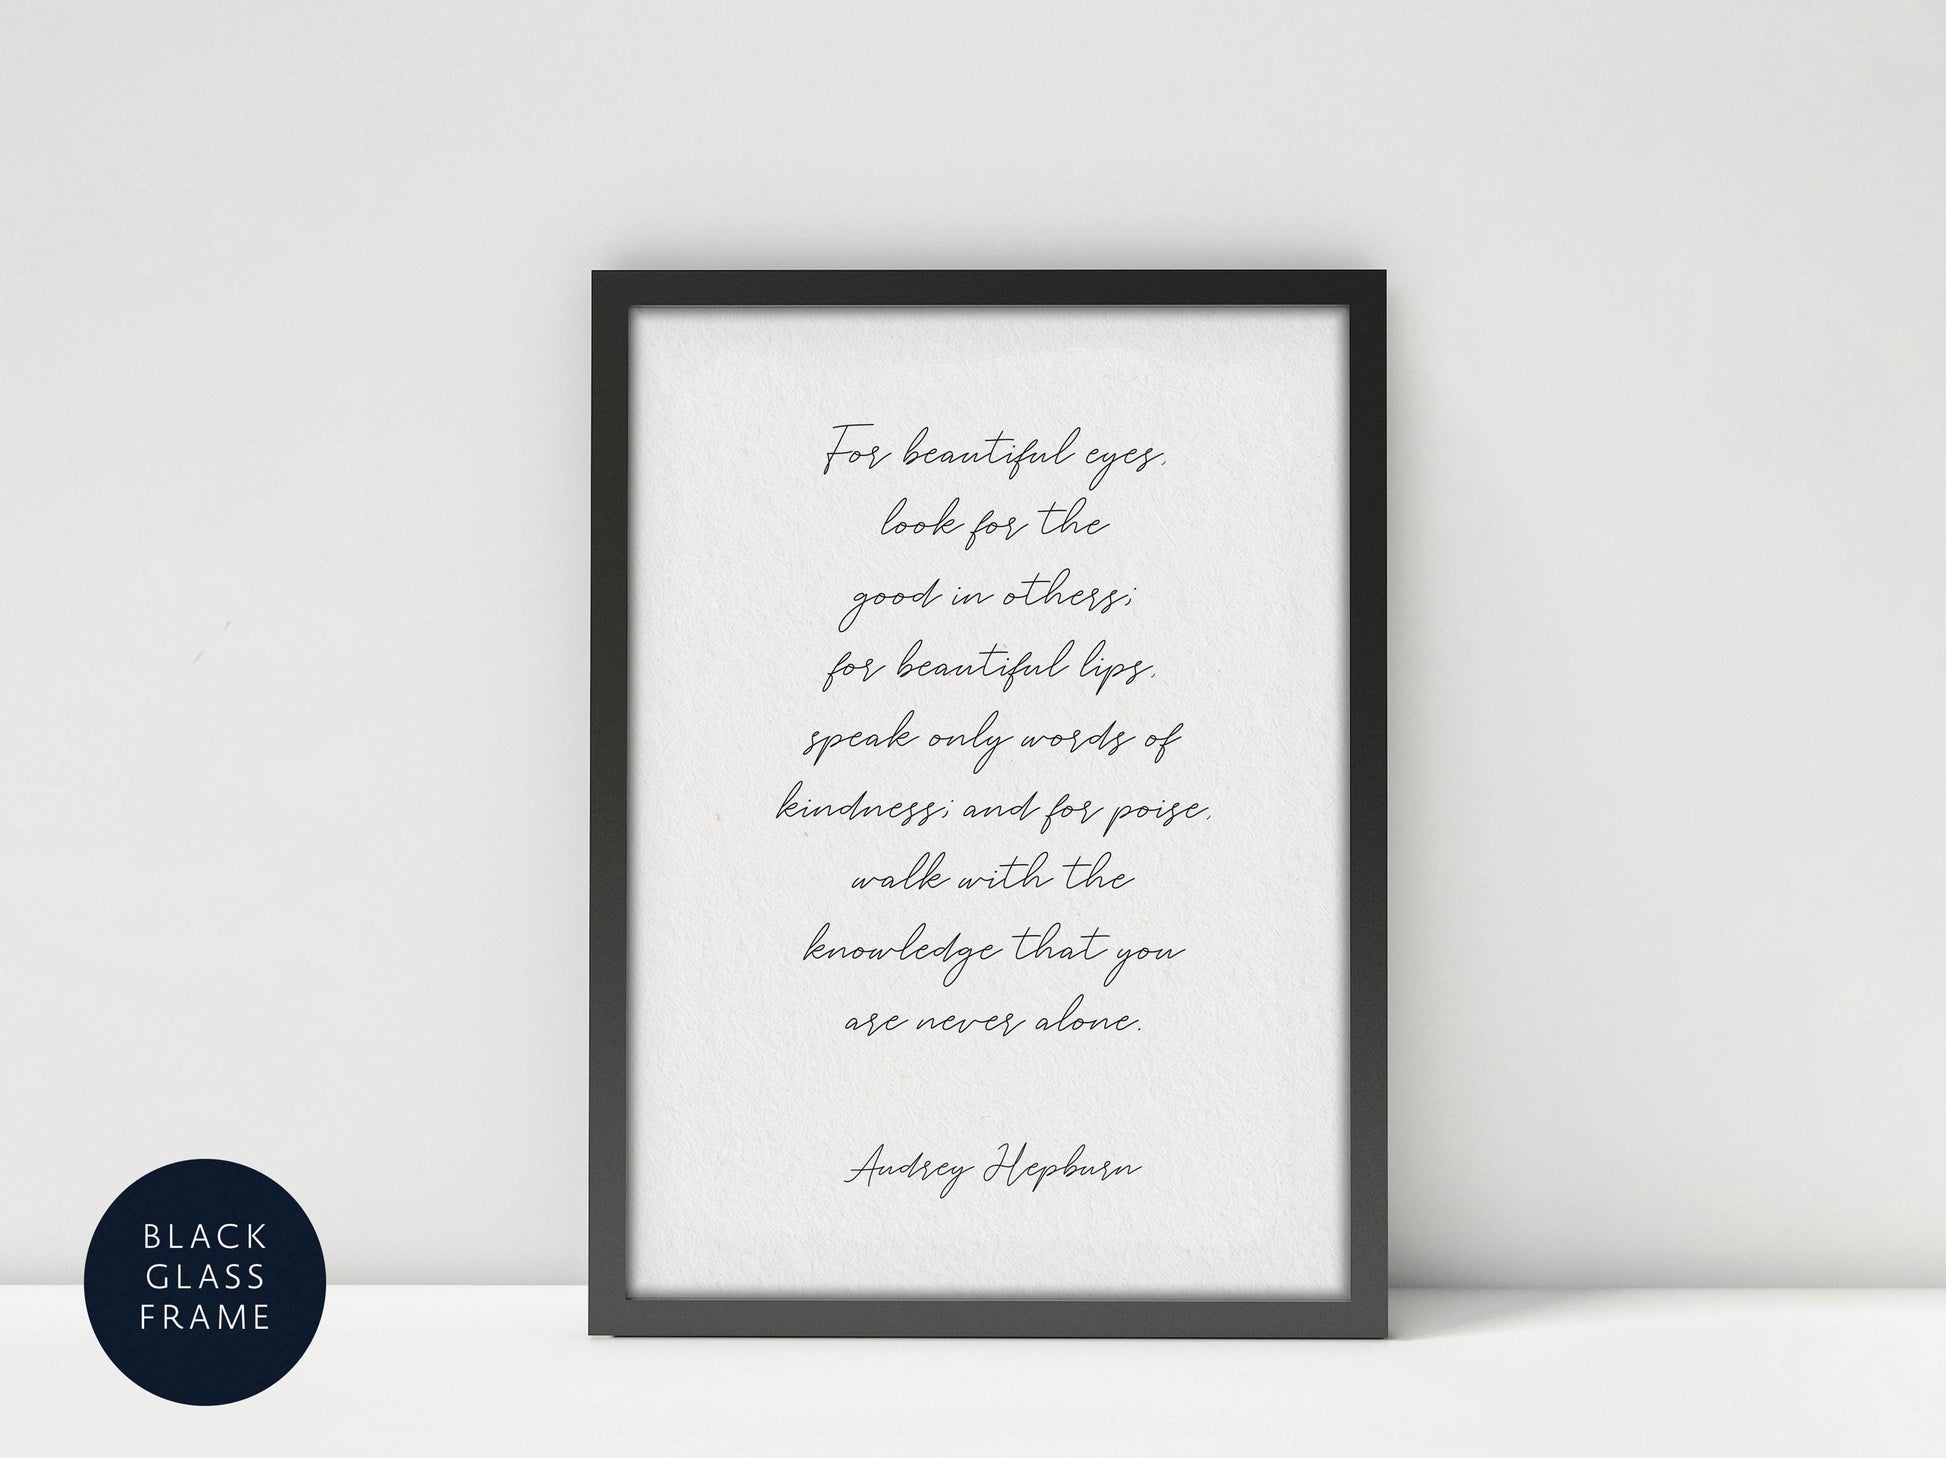 For beautiful eyes,
look for the
good in others;
for beautiful lips,
speak only words of
kindness; and for poise,
walk with the
knowledge that you
are never alone.
Audrey Hepburn
BLACK
GLASS
FRAME